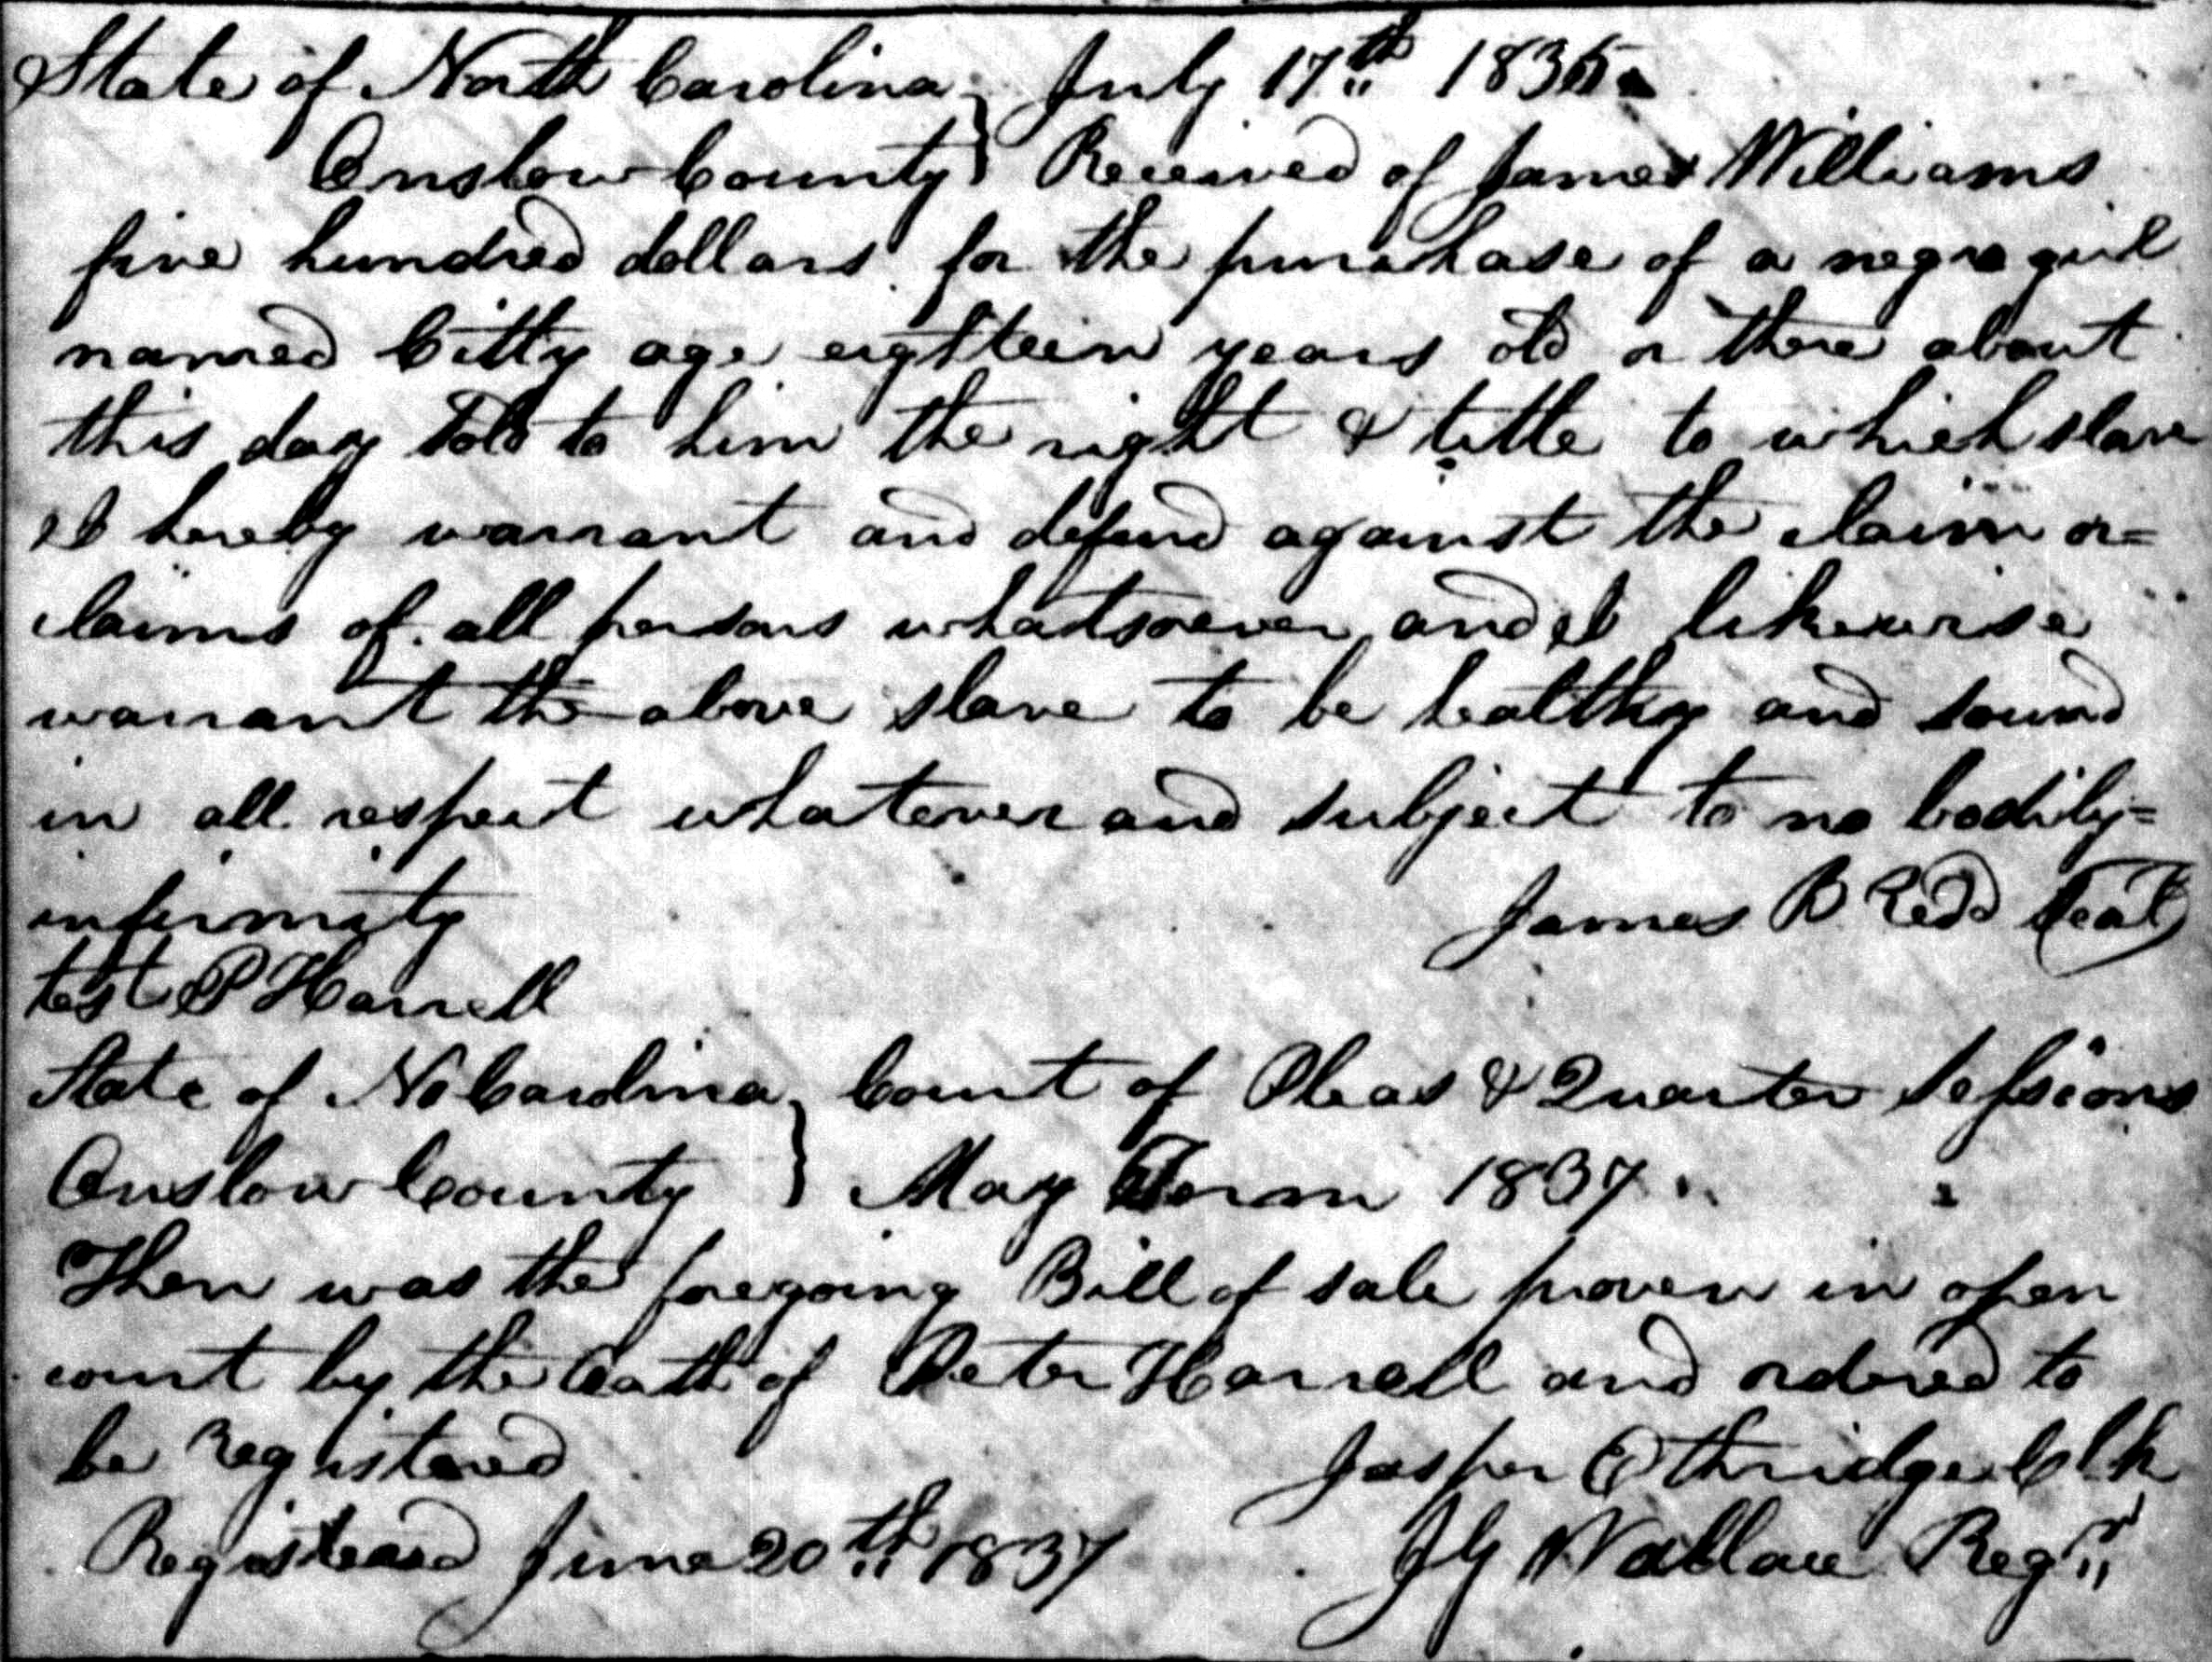 State of North Carolina } July 17th 1835
Onslow County } Received of James Williams
five hundred dollars for the purchase of a negro girl
named Citty age eighteen years old or there about
this day Sold to him the right & title to which slave
I hereby warrant and defend against the claim or=
claims of all persons whatsoever and I likewise
warrant the above slave to be healthy and sound
in all respect whatever and subject to no bodily=
infirmity James B Redd (Seal)
test P Harrell
State of No Carolina } Court of Pleas & Quarter Sessions
Onslow County } May Term 1837
Then was the foregoing Bill of sale proven in open
court by the Oath of Peter Harrell and ordered to
be Registered Jasper Ethridge Clk
Registered June 20th 1837 JG Wallace Regr